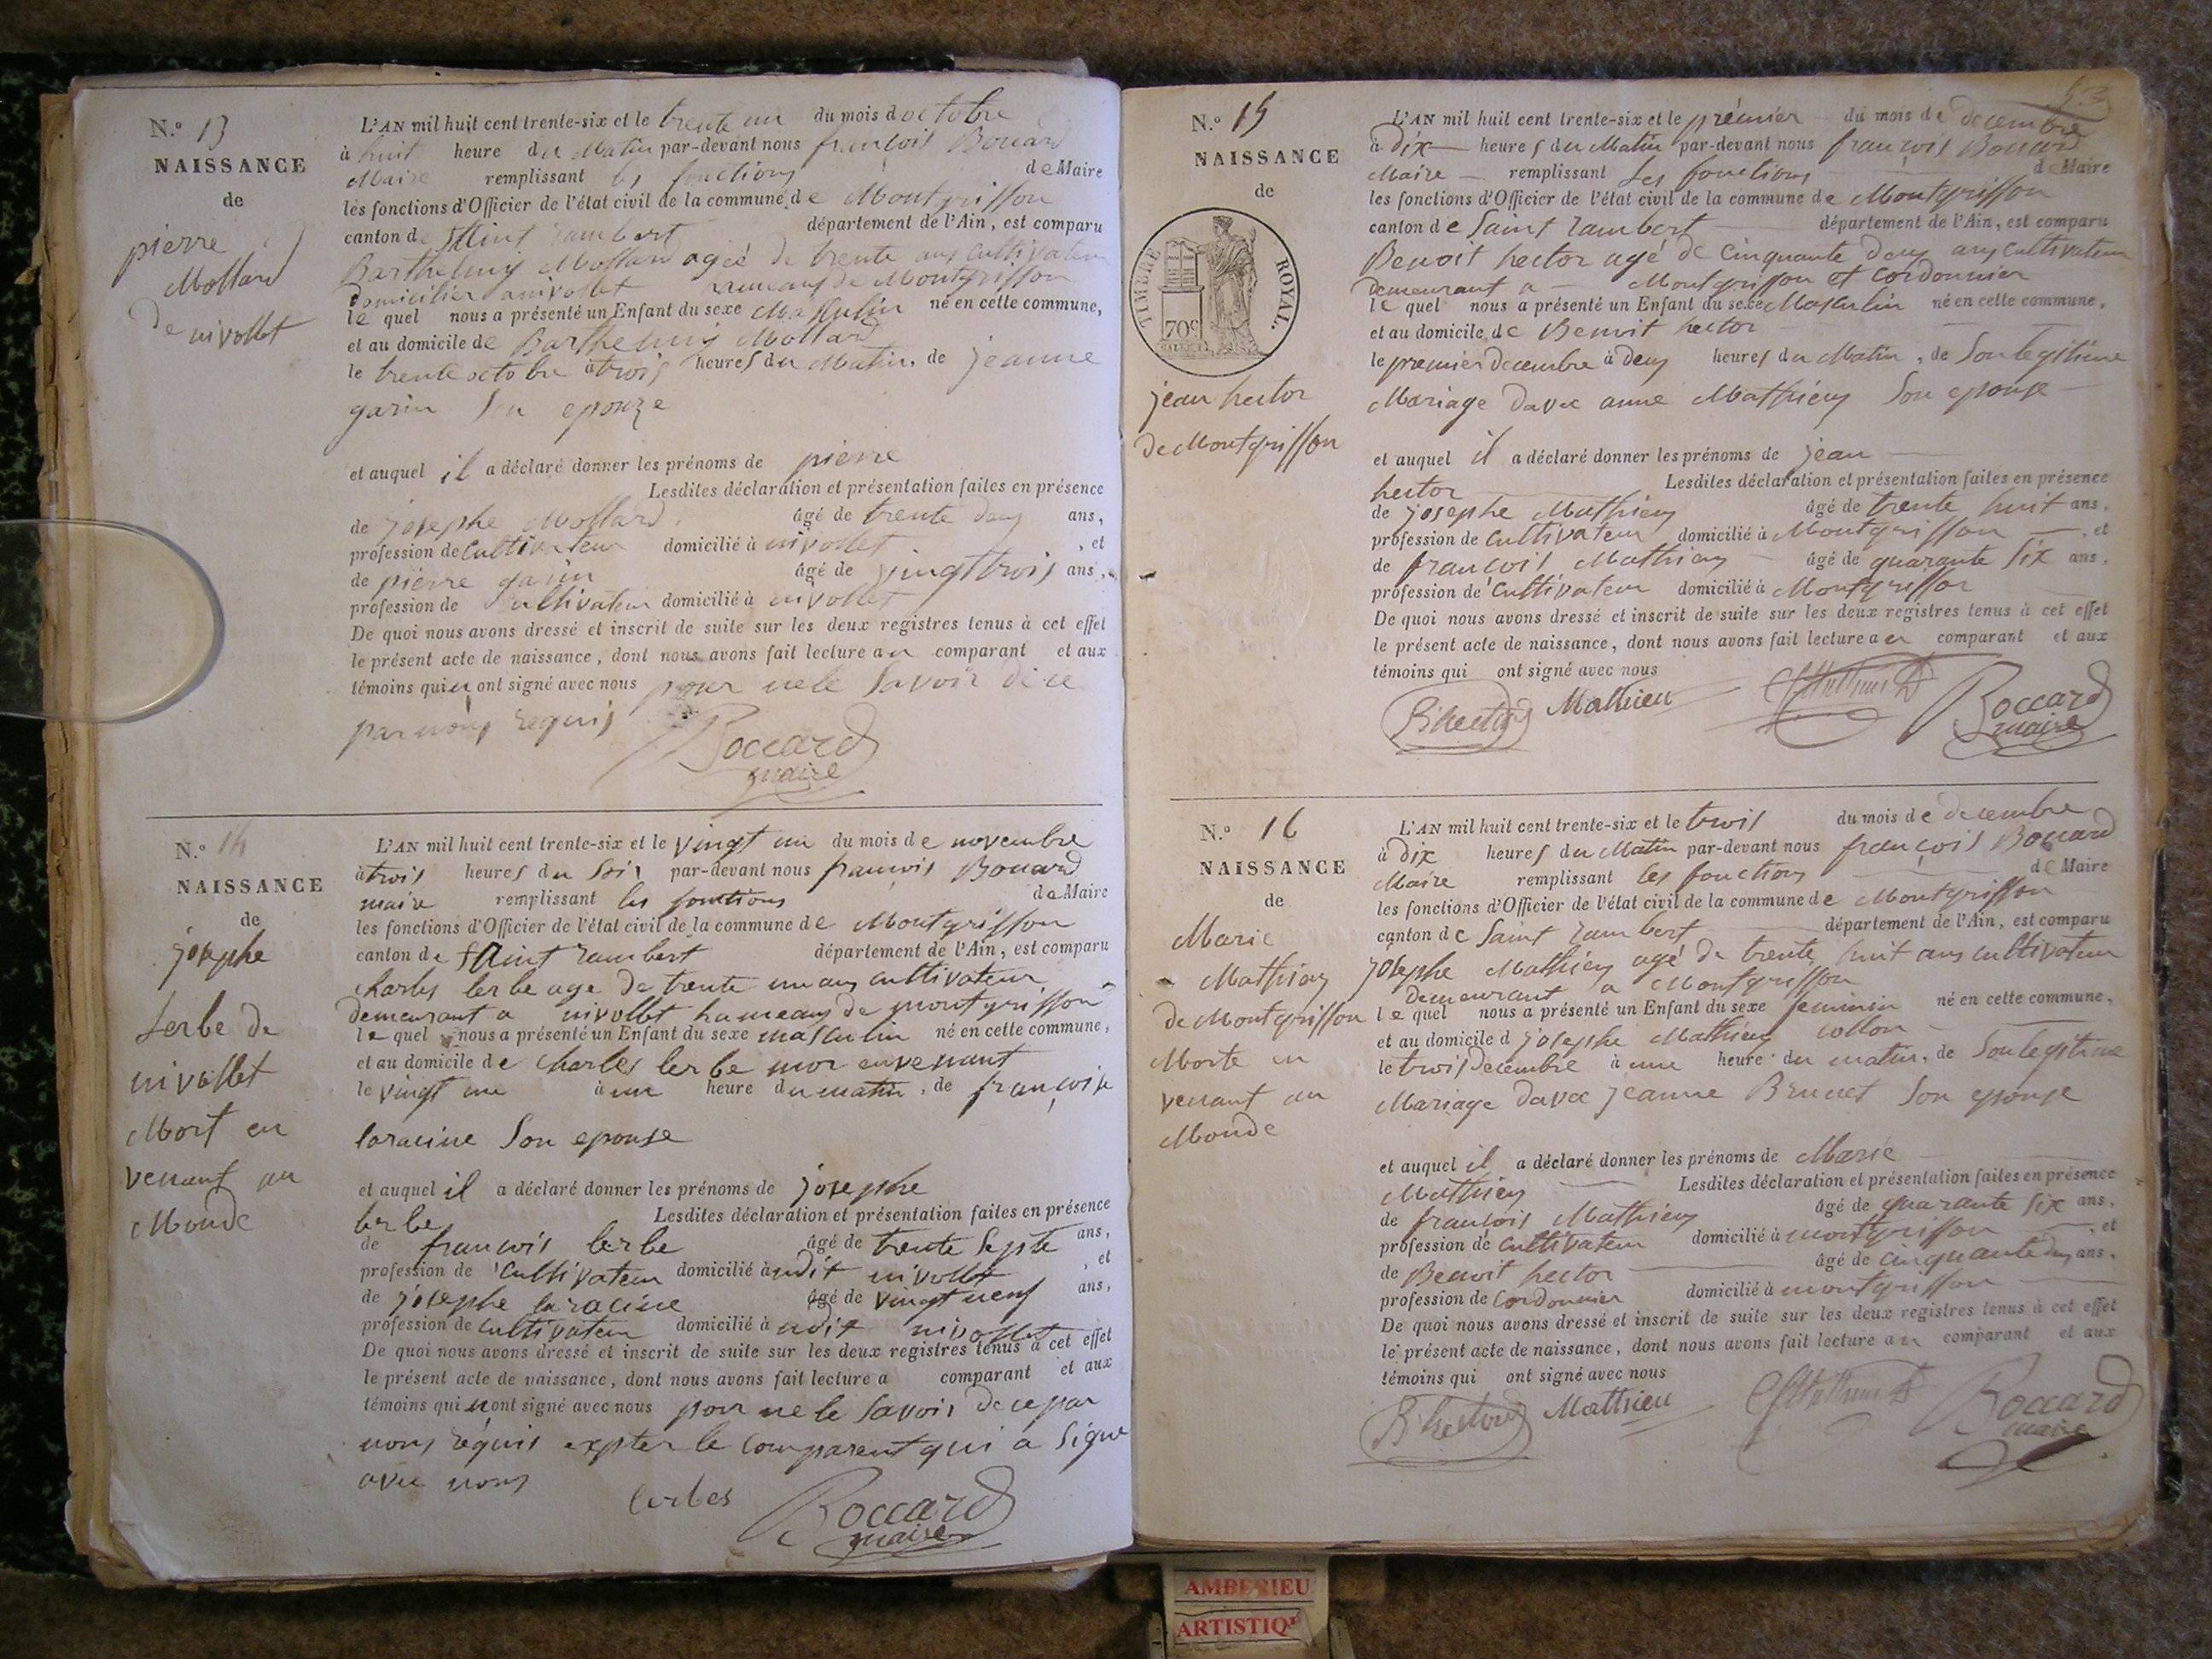 N.º 13
NAISSANCE
de
pierre
Mollard
de nivollet
L'AN mil huit cent trente-six et le trente un du mois d octobre
à huit heure du Matin par-devant nous françois Boccard
Maire remplissant les fonctions de Maire
les fonctions d'Officier de l'état civil de la commune de Montgriffon
canton de Saint rambert département de l'Ain, est comparu
Barthelmy Mollard agéé de trente ans cultivateur
domicilier a nivollet hameaux de Montgriffon
le quel nous a présenté un Enfant du sexe Masculin né en cette commune,
et au domicile de Barthelmy Mollard
le trente octobre à trois heures du Matin, de jeanne
garin Son epouze
et auquel il a déclaré donner les prénoms de pierre
Lesdites déclaration et présentation faites en présence
de josephe Mollard âgé de trente deux ans,
profession de Cultivateur domicilié à nivollet , et
de pierre garin âgé de vingt trois ans,
profession de Cultivateur domicilié à nivollet
De quoi nous avons dressé et inscrit de suite sur les deux registres tenus à cet effet
le présent acte de naissance, dont nous avons fait lecture au comparant et aux
témoins qui n ont signé avec nous pour ne le Savoir de ce
par nous requis
Boccard
maire
N.º 14
NAISSANCE
de
josephe
Lerbe de
nivollet
Mort en
venant au
Monde
L'AN mil huit cent trente-six et le vingt un du mois de novembre
à trois heures du Soir par-devant nous françois Boccard
maire remplissant les fonctions de Maire
les fonctions d'Officier de l'état civil de la commune de Montgriffon
canton de Saint rambert département de l'Ain, est comparu
charles lerbe age de trente un ans cultivateur
demeurant a nivollet hameaux de montgriffon
le quel nous a présenté un Enfant du sexe masculin né en cette commune,
et au domicile de charles lerbe mor en venant
le vingt un à un heure du matin, de françoise
laracine Son epouse
et auquel il a déclaré donner les prénoms de josephe
lerbe Lesdites déclaration et présentation faites en présence
de francois lerbe âgé de trente Septe ans,
profession de Cultivateur domicilié à udit nivollet , et
de josephe laracine âgé de vingt neuf ans,
profession de Cultivateur domicilié à udit nivollet
De quoi nous avons dressé et inscrit de suite sur les deux registres tenus à cet effet
le présent acte de naissance, dont nous avons fait lecture a comparant et aux
témoins qui n ont signé avec nous pour ne le Savoir de ce par
nous réquis expter le comparent qui a Signe
avec nous
Boccard
maire
N.º 15
NAISSANCE
de
TIMBRE ROYAL.
70c
jean hector
de Montgriffon
L'AN mil huit cent trente-six et le prémier du mois de decembre
à dix heures du Matin par-devant nous françois Boccard
Maire remplissant Les fonctions de Maire
les fonctions d'Officier de l'état civil de la commune de Montgriffon
canton de Saint rambert département de l'Ain, est comparu
Benoit hector agé de cinquante deux ans cultivateur
demeurant a Montgriffon et Cordonnier
le quel nous a présenté un Enfant du sexe Masculin né en cette commune,
et au domicile de Benoit hector
le premier decembre à deux heures du Matin, de Son legitime
Mariage davec anne Mathieux Son epouse
et auquel il a déclaré donner les prénoms de jean
hector Lesdites déclaration et présentation faites en présence
de josephe Mathieux âgé de trente huit ans,
profession de Cultivateur domicilié à Montgriffon , et
de francois Mathieux âgé de quarante Six ans,
profession de Cultivateur domicilié à Montgriffon
De quoi nous avons dressé et inscrit de suite sur les deux registres tenus à cet effet
le présent acte de naissance, dont nous avons fait lecture au comparant et aux
témoins qui ont signé avec nous
B hector Mathieu Boccard
maire
N.º 16
NAISSANCE
de
Marie
Mathieux
de Montgriffon
Morte en
venant au
Monde
L'AN mil huit cent trente-six et le trois du mois de decembre
à dix heures du Matin par-devant nous françois Boccard
Maire remplissant les fonctions de Maire
les fonctions d'Officier de l'état civil de la commune de Montgriffon
canton de Saint rambert département de l'Ain, est comparu
josephe Mathieux agé de trente huit ans cultivateur
demeurant a Montgriffon
le quel nous a présenté un Enfant du sexe feminin né en cette commune,
et au domicile d josephe Mathieux
le trois decembre à une heure du matin, de Son legitime
Mariage davec jeanne Brunet Son epouse
et auquel il a déclaré donner les prénoms de Marie
Mathieux Lesdites déclaration et présentation faites en présence
de francois Mathieux âgé de quarante Six ans,
profession de Cultivateur domicilié à montgriffon , et
de Benoit hector âgé de cinquante deux ans,
profession de Cordonnier domicilié à montgriffon
De quoi nous avons dressé et inscrit de suite sur les deux registres tenus à cet effet
le présent acte de naissance, dont nous avons fait lecture au comparant et aux
témoins qui ont signé avec nous
B hector Matthieu Boccard
maire
AMBERIEU
ARTISTIQ